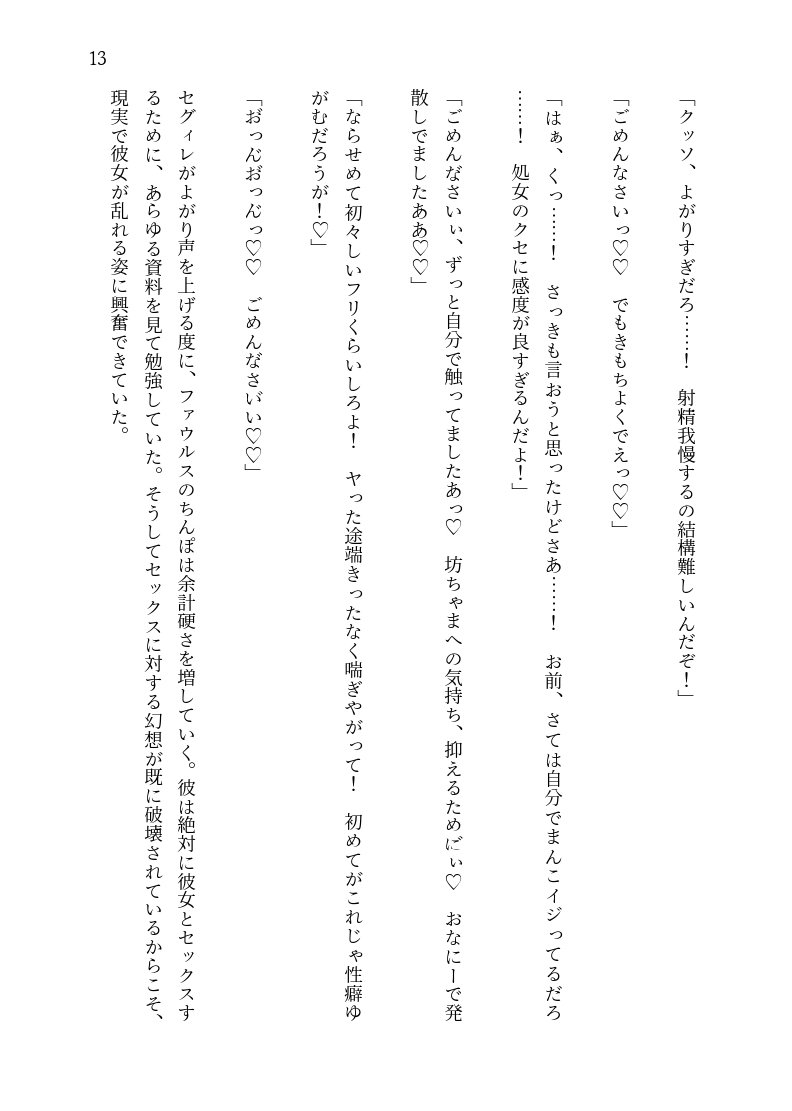 13
「クッソ、よがりすぎだろ……！　射精我慢するの結構難しいんだぞ！」
「ごめんなさいっ♡♡　でもきもちよくでえっ♡♡」
「はぁ、くっ……！　さっきも言おうと思ったけどさあ……！　お前、さては自分でまんこイジってるだろ
……！　処女のクセに感度が良すぎるんだよ！」
「ごめんなざいぃ、ずっと自分で触ってましたあっ♡　坊ちゃまへの気持ち、抑えるためにﾞぃ♡　おなにーで発
散しでましたああ♡♡」
「ならせめて初々しいフリくらいしろよ！　ヤった途端きったなく喘ぎやがって！　初めてがこれじゃ性癖ゆ
がむだろうが！♡」
「お゛っん゛お゛っん゛っ♡♡　ごめんなさい゛い♡♡」
セグィレがよがり声を上げる度に、ファウルスのちんぽは余計硬さを増していく。彼は絶対に彼女とセックスす
るために、あらゆる資料を見て勉強していた。そうしてセックスに対する幻想が既に破壊されているからこそ、
現実で彼女が乱れる姿に興奮できていた。